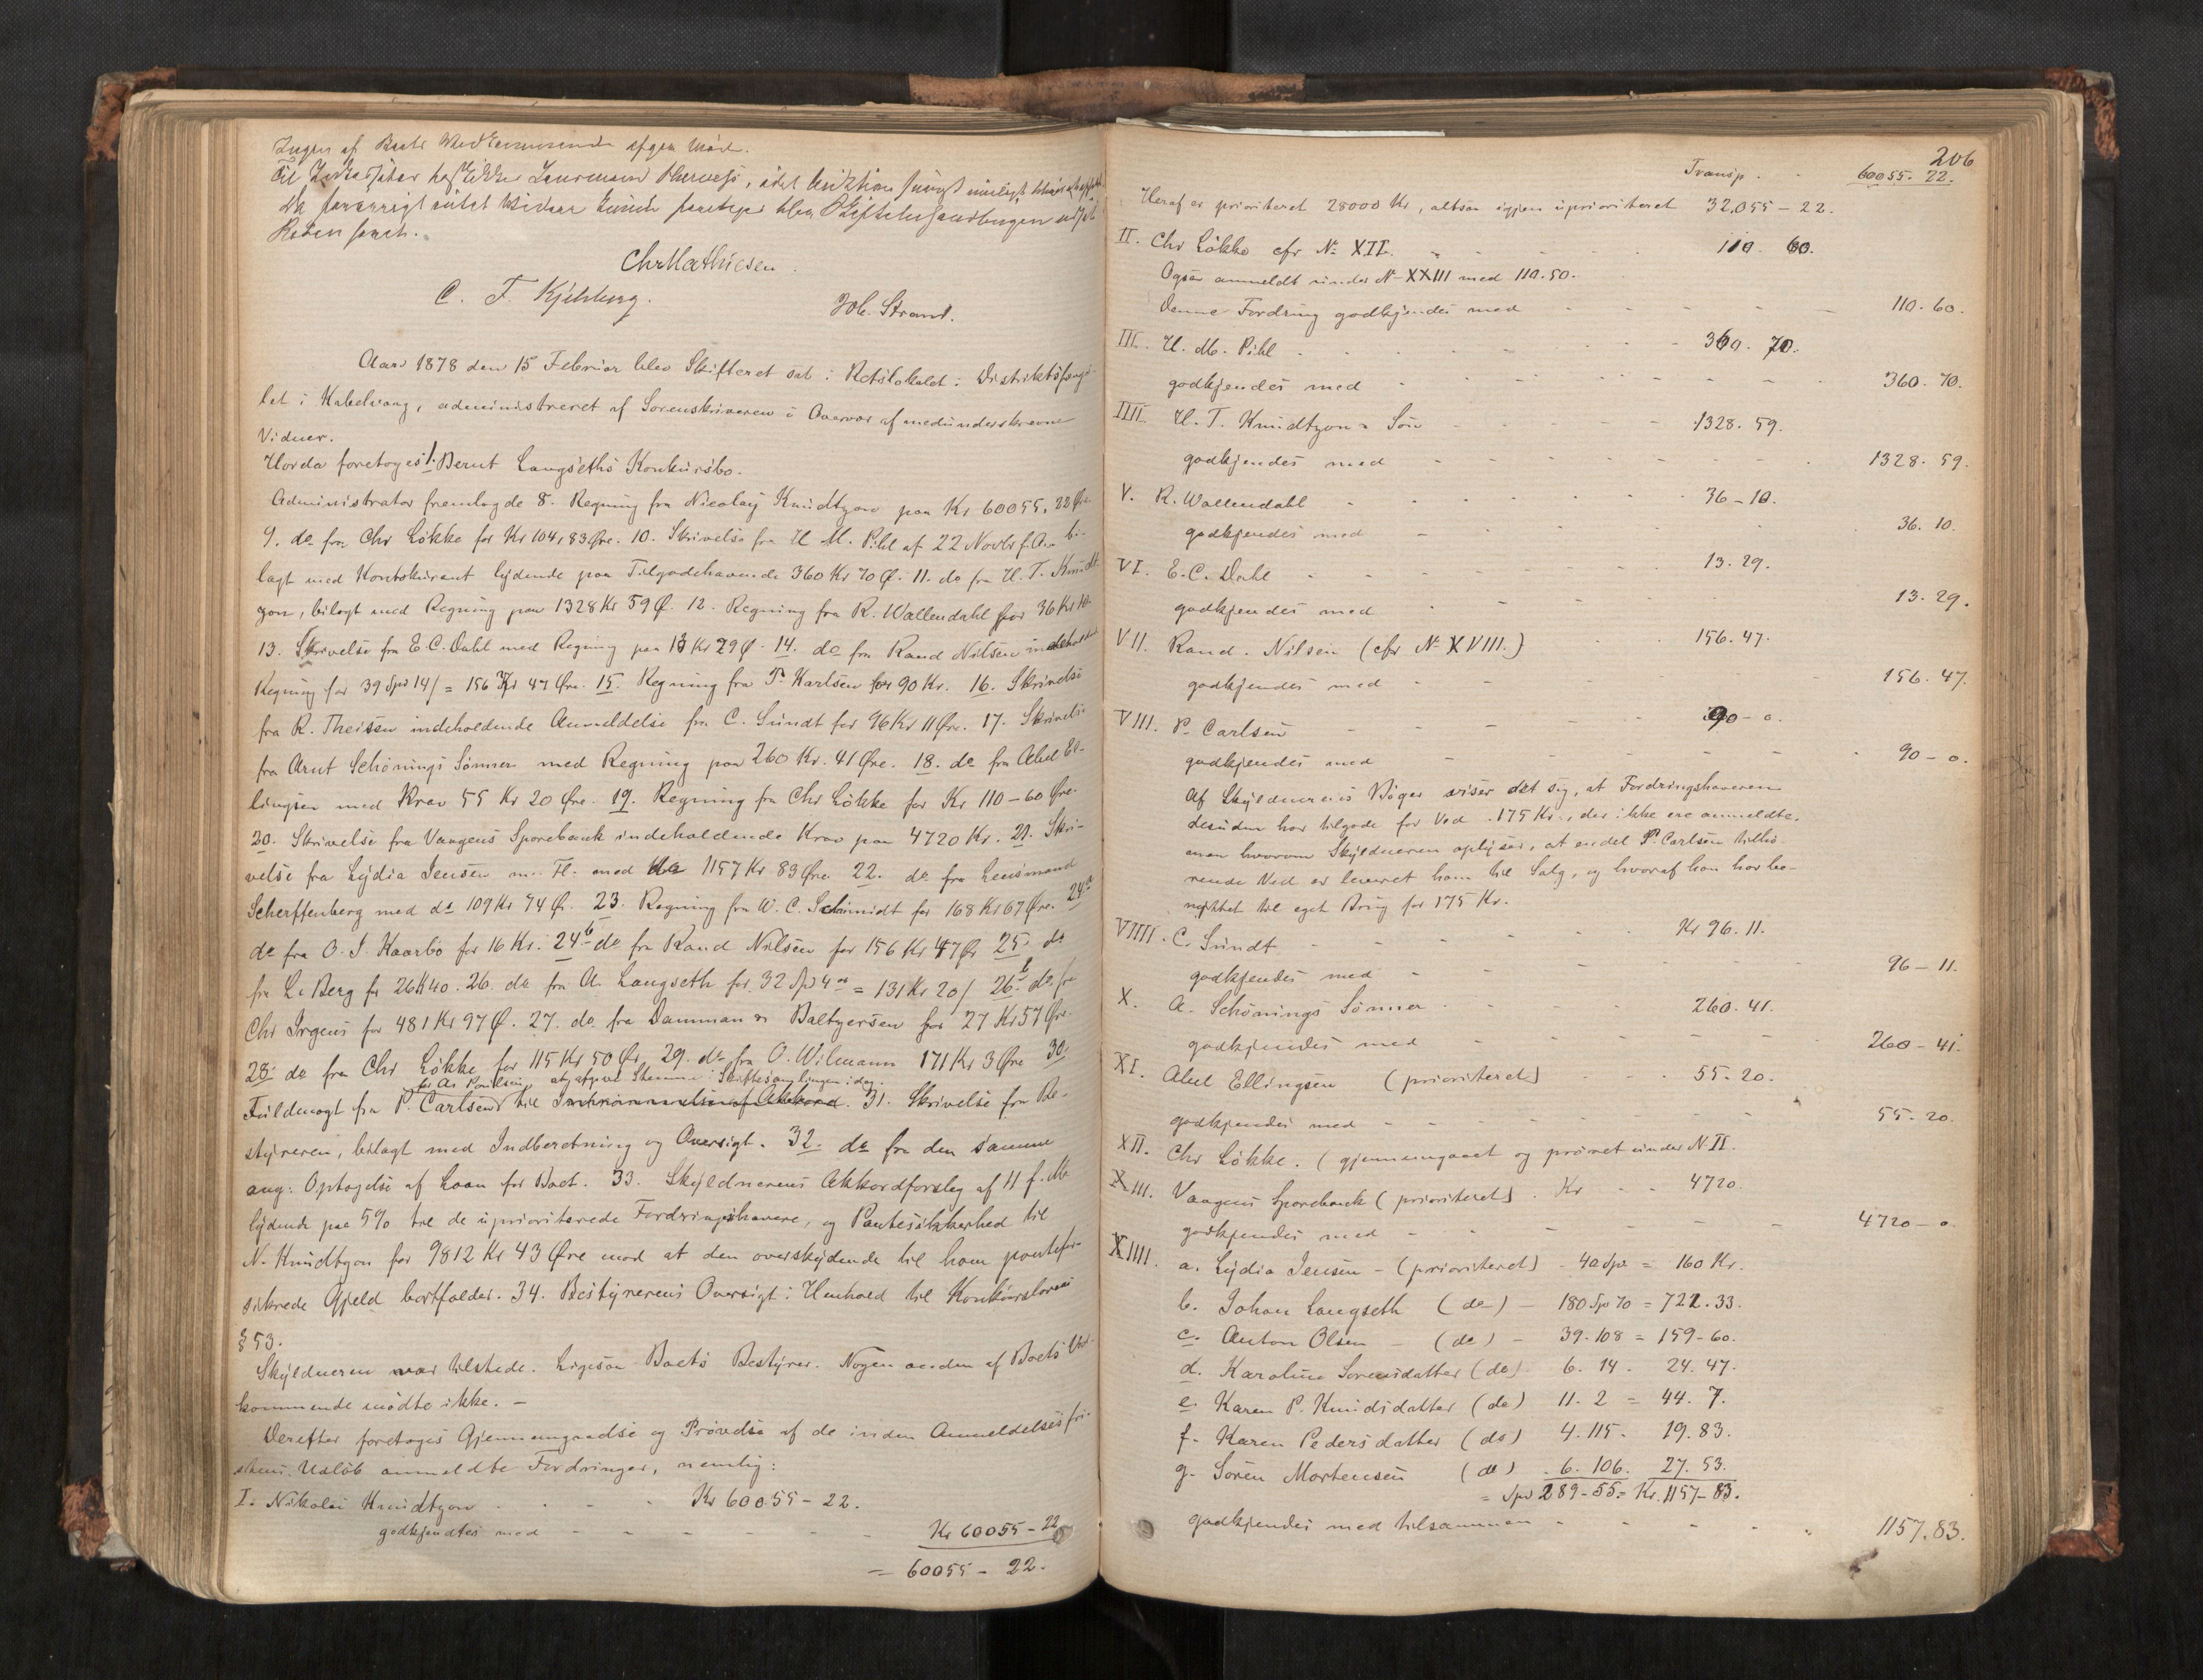 Ingen af Boets Vedkommende afgav Møde.
Til
Da forøvrigt intet videre kunde foretages blev Skiftebehandlingen udsat
ChrMathiesen.
C. F. Kjelsberg.
Joh. Strand.
Aar 1878 den 15 Februar blev Skifteret sat i Retslokalet i Distriktsfængs-
let i Kabelvaag, administreret af Sorenskriveren i Overvær af medunderskrevne
Vidner.
Hvorda foretoges 1. Bernt Langseths Konkursbo.
Administrator fremlagde 8. Regning fra Nicolay Knudtzon paa Kr 60055,22 Øre
9. do fra Chr Løkke for Kr 104,83 Øre. 10. Skrivelse fra H M. Pihl af 22 Novbr f.A. bi-
lagt med Kontokurant lydende paa Tilgodehavende 360 Kr 70 Ø. 11. do fra H. T. Knudt-
zon, bilagt med Regning paa 1328 Kr 59 Ø. 12. Regning fra R. Wallendahl for 36 Kr 10
13. Skrivelse fra E. C. Dahl med Regning paa 13 Kr 29 Ø. 14. do fra Rand Nilsen indeholdende
Regning for 39 Spd 14/ = 156 Kr 47 Øre. 15. Regning fra P. Karlsen for 90 Kr. 16. Skrivelse
fra R. Theisen indeholdende Anmeldelse fra C. Sundt for 96 Kr 11 Øre. 17. Skrivelse
fra Arnt Schønings Sønner med Regning paa 260 Kr. 41 Øre. 18. do fra Abel El-
lingsen med Krav 55 Kr 20 Øre. 19. Regning fra Chr Løkke for Kr 110-60 Øre.
20. Skrivelse fra Vaagens Sparebank indeholdende Krav paa 4720 Kr. 21. Skri-
velse fra Lydia Jensen m. Fl. med do 1157 Kr 83 Øre. 22. do fra Lensmand
Scherffenberg med do 109 Kr 74 Ø. 23. Regning fra W. C. Schmidt for 168 Kr 67 Øre. 24a
do fra O. J. Kaarbø for 16 Kr. 24b do fra Rand Nilsen for 156 Kr 47 Ør 25. do
fra L. Berg for 26 Kr 40. 26. do fra A. Langseth for 32 Spd 4 = 131 Kr 20/ 26b do fra
Chr Irgens for 481 Kr 97 Ø. 27. do fra Damman & Baltzersen for 27 Kr 57 Øre.
28. do fra Chr Løkke for 115 Kr 50 Ør, 29. do fra O. Wilmann 171 Kr 3 Øre 30.
for As Poulsen at afgive Stemme i Skiftesamlingen i dag.
Fuldmagt fra P. Carlsen til af Akkord. 31. Skrivelse fra Be-
styreren, bilagt med Indberetning og Oversigt. 32. do fra den samme
ang: Optagelse af Laan for Boet. 33. Skyldnerens Akkordforslag af 11 f. M.
lydende paa 5% til de uprioriterede Fordringshavere, og Pantesikkerhed til
N. Knudtzon for 9812 Kr 43 Øre mod at den overskydende til ham pantefor-
sikrede Gjeld bortfalder. 34. Bestyrerens Oversigt i Henhold til Konkurslovens
§ 53.
Skyldneren var tilstede. Ligesaa Boets Bestyrer. Nogen anden af Boets Ved-
kommende mødte ikke. -
Derefter foretoges Gjennemgaaelse og Prøvelse af de inden Anmeldelsesfri-
stens Udløb anmeldte Fordringer, nemlig:
I. Nikolai Knudtzon Kr 60055-22.
godkjendtes med Kr 60055-22
= 60055-22.
206
Transp. 60055. 22.
Heraf er prioriteret 28000 Kr, altsaa igjen uprioriteret 32,055-22.
II. Chr Løkke cfr No XII. 110. 60.
Ogsaa anmeldt under No XXIII med 110.50.
Denne Fordring godkjendes med 110-60.
III. H. M. Pihl 360. 70.
godkjendes med 360. 70.
IIII. H. T. Knudtzon & Søn 1328. 59.
godkjendes med 1328. 59.
V. R. Wallendahl 36-10.
godkjendes med 36. 10.
VI. E. C. Dahl 13. 29.
godkjendes med 13. 29.
VII. Rand. Nilsen (cfr No XVIII.) 156. 47.
godkjendes med 156. 47.
VIII. P. Carlsen 90-0.
godkjendes med 90-0.
Af Skyldnerens Bøger viser det sig, at Fordringshaveren
desuden har tilgode for Ved 175 Kr., der ikke ere anmeldte,
men hvorom Skyldneren oplyser, at endel P. Carlsen tilhø-
rende Ved er leveret ham til Salg, og hvoraf han har be-
nyttet til eget Brug for 175 Kr.
VIIII. C. Sundt Kr 96. 11.
godkjendes med 96-11.
X. A. Schønings Sønner 260. 41.
godkjendes med 260-41.
XI. Abel Ellingsen (prioriteret) 55. 20.
godkjendes med 55. 20.
XII. Chr Løkke. (gjennemgaaet og prøvet under N. II.
XIII. Vaagens Sparebank (prioriteret) Kr 4720.
godkjendes med 4720-0
XIIII. a. Lydia Jensen - (prioriteret) - 40 Spd = 160 Kr.
b. Johan Langseth (do) - 180 Spd 70 = 722. 33.
c. Anton Olsen - (do) - 39. 108 = 159-60.
d. Karoline Sorensdatter (do) 6. 14. 24. 47.
e. Karen P. Knudsdatter (do) 11. 2 = 44. 7.
f. Karen Pedersdatter (do) 4. 115. 19. 83.
g. Søren Mortensen (do) 6. 106. 27. 53.
= Spd 289-55 = Kr. 1157-83.
godkjendes med tilsammen 1157. 83.